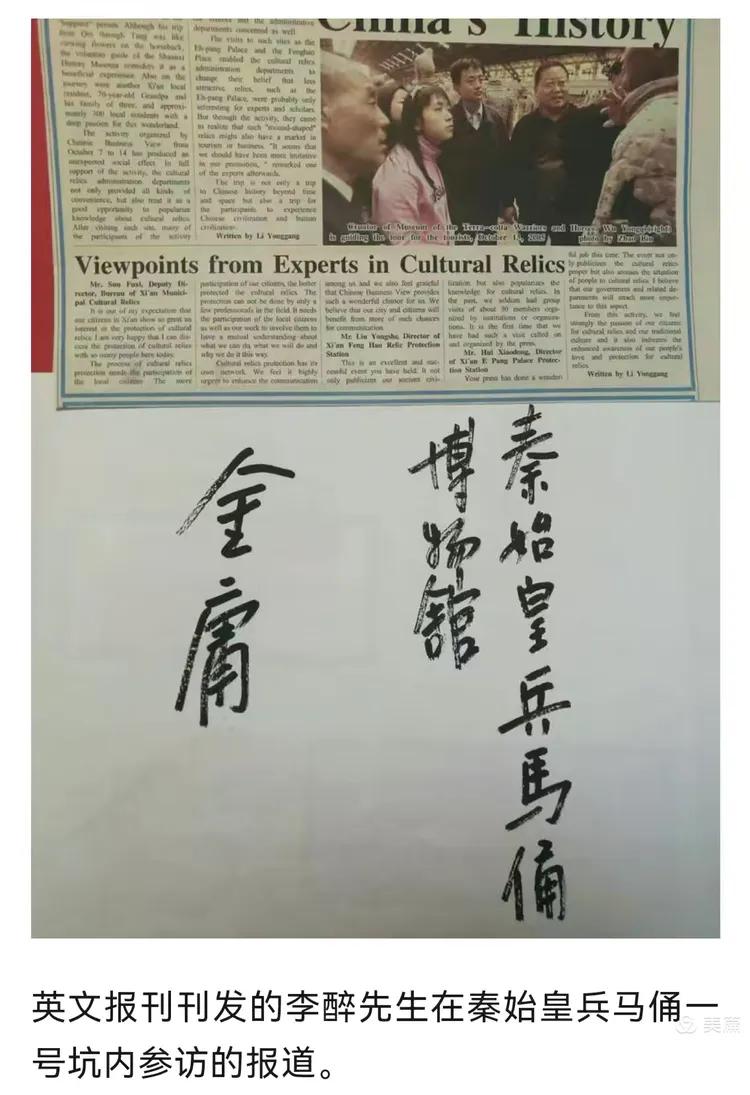 China's History
support" person. Although his trip
from Qin through Tang was like
viewing flowers on the horseback,
the volunteer guide of the Shaanxi
History Museum considers it as a
beneficial experience. Also on the
journey were another Xi'an local
resident, 70-year-old Grandpa and
his family of three, and approxi-
mately 300 local residents with a
deep passion for this wonderland.
The activity organized by
Chinese Business View from
October 7 to 14 has produced an
unexpected social effect. In full
support of the activity, the cultural
relics administration departments
not only provided all kinds of
convenience, but also treat it as a
good opportunity to popularize
knowledge about cultural relics.
After visiting each site, many of
the participants of the activity
and the administrative
departments concerned as well.
The visits to such sites as the
Eh-pang Palace and the Fenghao
Place enabled the cultural relics
administration departments to
change their belief that less
attractive relics, such as the
Eh-pang Palace, were probably only
interesting for experts and scholars.
But through the activity, they came
to realize that such "mound-shaped"
relics might also have a market in
tourism or business. "It seems that
we should have been more initiative
in our promotion, " remarked one
of the experts afterwards.
The trip is not only a trip
to Chinese history beyond time
and space but also a trip for
the participants to experience
Chinese civilization and human
civilization.
Written by Li Yonggang
Curator of Museum of the Terra-cotta Warriors and Horses, Wu Yongqi(right)
is guiding the tour for the tourists, October 13, 2005
Viewpoints from Experts in Cultural Relics
Mr. Sun Fuxi, Deputy Di-
rector, Bureau of Xi'an Munici-
pal Cultural Relics
It is out of my expectation that
our citizens in Xi'an show so great an
interest in the protection of cultural
relics. I am very happy that I can dis-
cuss the protection of cultural relics
with so many people here today.
The process of cultural relics
protection needs the participation of
the local citizens. The more
participation of our citizens, the better
protected the cultural relics. The
protection can not be done by only a
few professionals in the field. It needs
the participation of the local citizens
as well as our work to involve them to
have a mutual understanding about
what we can do, what we will do and
why we do it this way.
Cultural relics protection has its
own network. We feel it highly
urgent to enhance the communication
among us and we also feel grateful
that Chinese Business View provides
such a wonderful chance for us. We
believe that our city and citizens will
benefit from more of such chances
for communication.
Mr. Liu Yongshe, Director of
Xi'an Feng Hao Relic Protection
Station
This is an excellent and suc-
cessful event you have held. It not
only publicizes our ancient civi-
lization but also popularizes the
knowledge for cultural relics. In
the past, we seldom had group
visits of about 30 members orga-
nized by institutions or organiza-
tions. It is the first time that we
have had such a visit called on
and organized by the press.
Mr. Hui Xiaodong, Director
of Xi'an E Pang Palace Protec-
tion Station
Your press has done a wonder-
ful job this time. The event not on-
ly publicizes the cultural relics
proper but also arouses the attention
of people to cultural relics. I believe
that our government and related de-
partments will attach more impor-
tance to this aspect.
From this activity, we feel
strongly the passion of our citizens
for cultural relics and our traditional
culture and it also indicates the
enhanced awareness of our people's
love and protection for cultural
relics.
Written by Li Yonggang
秦始皇兵馬俑
博物館
金庸
英文报刊刊发的李醉先生在秦始皇兵马俑一
号坑内参访的报道。
美篇